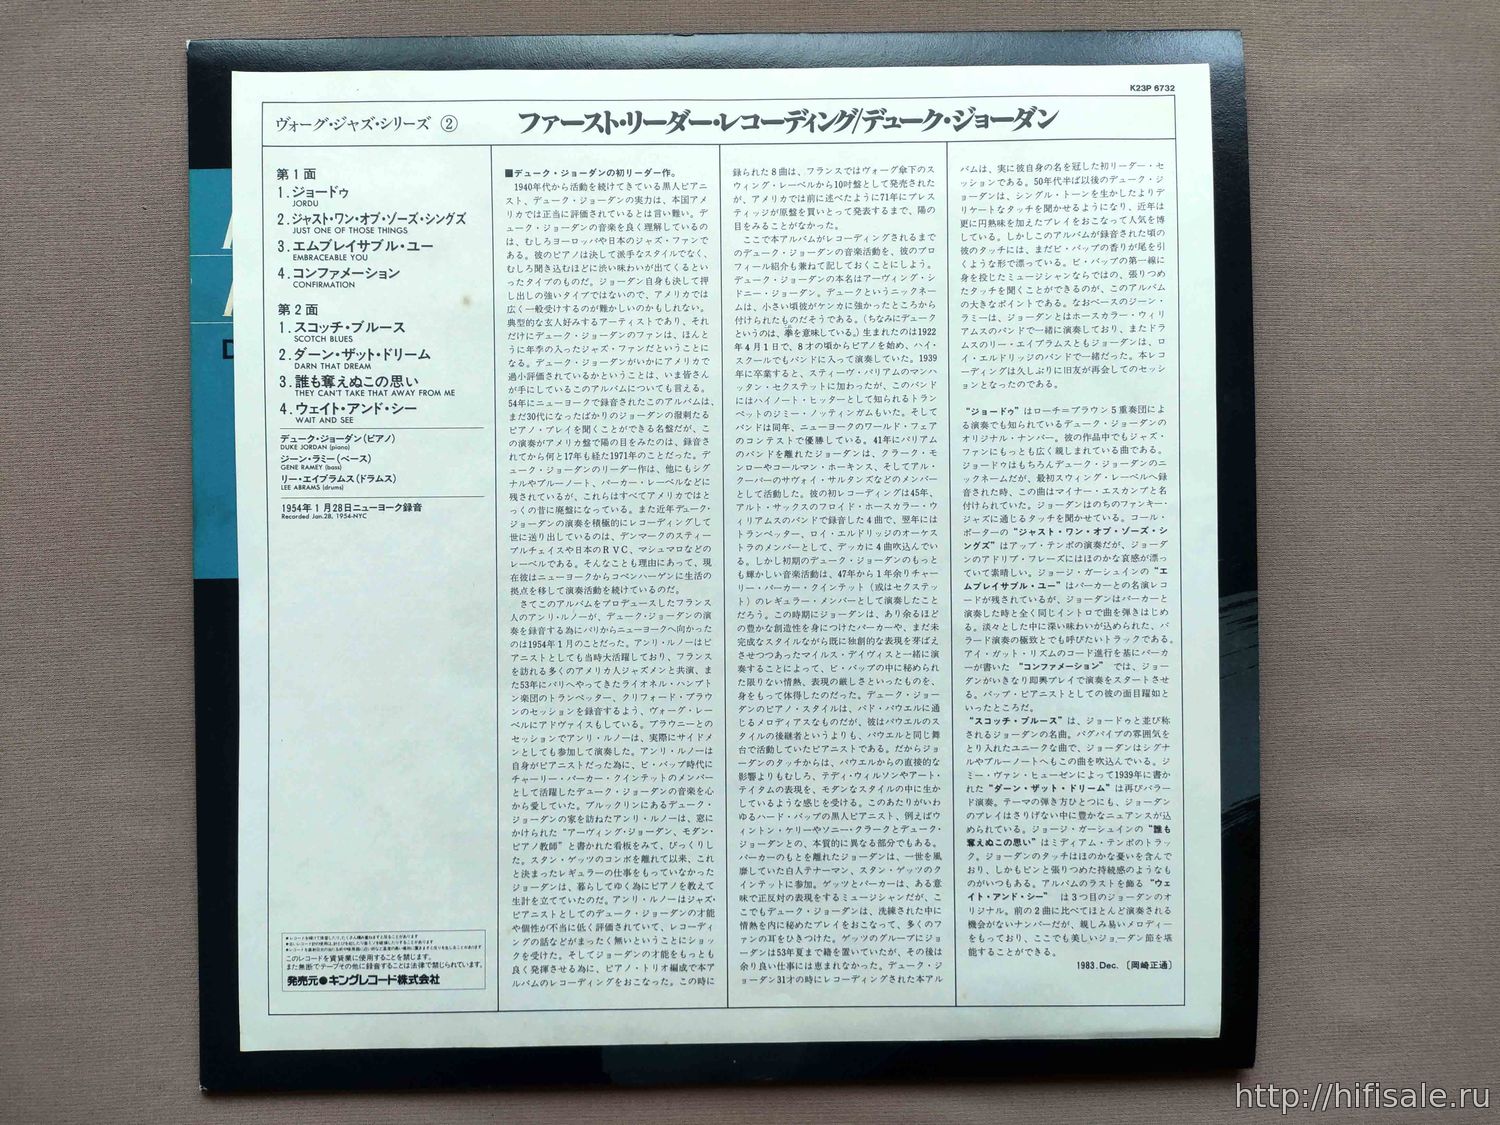 K23P 6732
ヴォーグ・ジャズ・シリーズ ②
ファースト・リーダー・レコーディング/デューク・ジョーダン
第1面
1. ジョードゥ
JORDU
2. ジャスト・ワン・オブ・ゾーズ・シングズ
JUST ONE OF THOSE THINGS
3. エムブレイサブル・ユー
EMBRACEABLE YOU
4. コンファメーション
CONFIRMATION
第2面
1. スコッチ・ブルース
SCOTCH BLUES
2. ダーン・ザット・ドリーム
DARN THAT DREAM
3. 誰も奪えぬこの思い
THEY CAN'T TAKE THAT AWAY FROM ME
4. ウェイト・アンド・シー
WAIT AND SEE
デューク・ジョーダン(ピアノ)
DUKE JORDAN (piano)
ジーン・ラミー(ベース)
GENE RAMEY (bass)
リー・エイブラムス(ドラムス)
LEE ABRAMS (drums)
1954年1月28日ニューヨーク録音
Recorded Jan.28, 1954-NYC
このレコードを賃貸業に使用することを禁じます。
また無断でテープその他に録音することは法律で禁じられています。
発売元●キングレコード株式会社
■デューク・ジョーダンの初リーダー作。
1940年代から活動を続けてきている黒人ピアニ
スト、デューク・ジョーダンの実力は、本国アメ
リカでは正当に評価されているとは言い難い。デ
ューク・ジョーダンの音楽を良く理解しているの
は、むしろヨーロッパや日本のジャズ・ファンで
ある。彼のピアノは決して派手なスタイルでなく、
むしろ聞き込むほどに渋い味わいが出てくるとい
ったタイプのものだ。ジョーダン自身も決して押
し出しの強いタイプではないので、アメリカでは
広く一般受けするのが難かしいのかもしれない。
典型的な玄人好みするアーティストであり、それ
だけにデューク・ジョーダンのファンは、ほんと
うに年季の入ったジャズ・ファンだということに
なる。デューク・ジョーダンがいかにアメリカで
過小評価されているかということは、いま皆さん
が手にしているこのアルバムについても言える。
54年にニューヨークで録音されたこのアルバムは、
まだ30代になったばかりのジョーダンの溌剌たる
ピアノ・プレイを聞くことができる名盤だが、こ
の演奏がアメリカ盤で陽の目をみたのは、録音さ
れてから何と17年も経た1971年のことだった。デ
ューク・ジョーダンのリーダー作は、他にもシグ
ナルやブルーノート、パーカー・レーベルなどに
残されているが、これらはすべてアメリカではと
っくの昔に廃盤になっている。また近年デューク・
ジョーダンの演奏を積極的にレコーディングして
世に送り出しているのは、デンマークのスティー
プルチェイスや日本のRVC、マシュマロなどの
レーベルである。そんなことも理由にあって、現
在彼はニューヨークからコペンハーゲンに生活の
拠点を移して演奏活動を続けているのだ。
さてこのアルバムをプロデュースしたフランス
人のアンリ・ルノーが、デューク・ジョーダンの演
奏を録音する為にパリからニューヨークへ向かった
のは1954年1月のことだった。アンリ・ルノーはピ
アニストとしても当時大活躍しており、フランス
を訪れる多くのアメリカ人ジャズメンと共演、ま
た53年にパリへやってきたライオネル・ハンプト
ン楽団のトランペッター、クリフォード・ブラウ
ンのセッションを録音するよう、ヴォーグ・レー
ベルにアドヴァイスもしている。ブラウニーとの
セッションでアンリ・ルノーは、実際にサイドメ
ンとしても参加して演奏した。アンリ・ルノーは
自身がピアニストだった為に、ビ・バップ時代に
チャーリー・パーカー・クインテットのメンバー
として活躍したデューク・ジョーダンの音楽を心
から愛していた。ブルックリンにあるデューク・
ジョーダンの家を訪ねたアンリ・ルノーは、窓に
かけられた“アーヴィング・ジョーダン、モダン・
ピアノ教師”と書かれた看板をみて、びっくりし
た。スタン・ゲッツのコンボを離れて以来、これ
と決まったレギュラーの仕事をもっていなかった
ジョーダンは、暮らしてゆく為にピアノを教えて
生計を立てていたのだ。アンリ・ルノーはジャズ・
ピアニストとしてのデューク・ジョーダンの才能
や個性が不当に低く評価されていて、レコーディ
ングの話などがまったく無いということにショッ
クを受けた。そしてジョーダンの才能をもっとも
良く発揮させる為に、ピアノ・トリオ編成で本ア
ルバムのレコーディングをおこなった。この時に
録られた8曲は、フランスではヴォーグ傘下のス
ウィング・レーベルから10吋盤として発売された
が、アメリカでは前に述べたように71年にプレス
ティッジが原盤を買いとって発表するまで、陽の
目をみることがなかった。
ここで本アルバムがレコーディングされるまで
のデューク・ジョーダンの音楽活動を、彼のプロ
フィール紹介も兼ねて記しておくことにしよう。
デューク・ジョーダンの本名はアーヴィング・シ
ドニー・ジョーダン。デュークというニックネー
ムは、小さい頃彼がケンカに強かったところから
付けられたものだそうである。(ちなみにデューク
というのは、拳を意味している。)生まれたのは1922
年4月1日で、8才の頃からピアノを始め、ハイ・
スクールでもバンドに入って演奏していた。1939
年に卒業すると、スティーヴ・パリアムのマンハ
ッタン・セクステットに加わったが、このバンド
にはハイノート・ヒッターとして知られるトラン
ペットのジミー・ノッティンガムもいた。そして
バンドは同年、ニューヨークのワールド・フェア
のコンテストで優勝している。41年にパリアム
のバンドを離れたジョーダンは、クラーク・モ
ンローやコールマン・ホーキンス、そしてアル・
クーパーのサヴォイ・サルタンズなどのメンバー
として活動した。彼の初レコーディングは45年、
アルト・サックスのフロイド・ホースカラー・ウ
ィリアムスのバンドで録音した4曲で、翌年には
トランペッター、ロイ・エルドリッジのオーケス
トラのメンバーとして、デッカに4曲吹込んでい
る。しかし初期のデューク・ジョーダンのもっと
も輝かしい音楽活動は、47年から1年余りチャー
リー・パーカー・クインテット(或はセクステッ
ト)のレギュラー・メンバーとして演奏したこと
だろう。この時期にジョーダンは、あり余るほど
の豊かな創造性を身につけたパーカーや、まだ未
完成なスタイルながら既に独創的な表現を芽ばえ
させつつあったマイルス・デイヴィスと一緒に演
奏することによって、ビ・バップの中に秘められ
た限りない情熱、表現の厳しさといったものを、
身をもって体得したのだった。デューク・ジョー
ダンのピアノ・スタイルは、バド・パウエルに通
じるメロディアスなものだが、彼はパウエルのス
タイルの後継者というよりも、パウエルと同じ舞
台で活動していたピアニストである。だからジョ
ーダンのタッチからは、パウエルからの直接的な
影響よりもむしろ、テディ・ウィルソンやアート・
テイタムの表現を、モダンなスタイルの中に生か
しているような感じを受ける。このあたりがいわ
ゆるハード・バップの黒人ピアニスト、例えばウ
ィントン・ケリーやソニー・クラークとデューク・
ジョーダンとの、本質的に異なる部分でもある。
パーカーのもとを離れたジョーダンは、一世を風
靡していた白人テナーマン、スタン・ゲッツのク
インテットに参加。ゲッツとパーカーは、ある意
味で正反対の表現をするミュージシャンだが、こ
こでもデューク・ジョーダンは、洗練された中に
情熱を内に秘めたプレイをおこなって、多くのフ
ァンの耳をひきつけた。ゲッツのグループにジョ
ーダンは53年夏まで籍を置いていたが、その後は
余り良い仕事には恵まれなかった。デューク・ジ
ョーダン31才の時にレコーディングされた本アル
バムは、実に彼自身の名を冠した初リーダー・セ
ッションである。50年代半ば以後のデューク・ジ
ョーダンは、シングル・トーンを生かしたよりデ
リケートなタッチを聞かせるようになり、近年は
更に円熟味を加えたプレイをおこなって人気を博
している。しかしこのアルバムが録音された頃の
彼のタッチには、まだビ・バップの香りが尾を引
くような形で漂っている。ビ・バップの第一線に
身を投じたミュージシャンならではの、張りつめ
たタッチを聞くことができるのが、このアルバム
の大きなポイントである。なおベースのジーン・
ラミーは、ジョーダンとはホースカラー・ウィリ
アムスのバンドで一緒に演奏しており、またドラ
ムスのリー・エイブラムスともジョーダンは、ロ
イ・エルドリッジのバンドで一緒だった。本レコ
ーディングは久しぶりに旧友が再会してのセッシ
ョンとなったのである。
“ジョードゥ”はローチ＝ブラウン5重奏団によ
る演奏でも知られているデューク・ジョーダンの
オリジナル・ナンバー。彼の作品中でもジャズ・
ファンにもっとも広く親しまれている曲である。
ジョードゥはもちろんデューク・ジョーダンのニ
ックネームだが、最初スウィング・レーベルへ録
音された時、この曲はマイナー・エスカンプと名
付けられていた。ジョーダンはのちのファンキー・
ジャズに通じるタッチを聞かせている。コール・
ポーターの“ジャスト・ワン・オブ・ゾーズ・シ
ングズ”はアップ・テンポの演奏だが、ジョーダ
ンのアドリブ・フレーズにはほのかな哀感が漂っ
ていて素晴しい。ジョージ・ガーシュインの“エ
ムブレイサブル・ユー”はパーカーとの名演レコ
ードが残されているが、ジョーダンはパーカーと
演奏した時と全く同じイントロで曲を弾きはじめ
る。淡々とした中に深い味わいが込められた、バ
ラード演奏の極致とでも呼びたいトラックである。
アイ・ガット・リズムのコード進行を基にパーカ
ーが書いた“コンファメーション”では、ジョー
ダンがいきなり即興プレイで演奏をスタートさせ
る。バップ・ピアニストとしての彼の面目躍如と
いったところだ。
“スコッチ・ブルース”は、ジョードゥと並び称
されるジョーダンの名曲。バグパイプの雰囲気を
とり入れたユニークな曲で、ジョーダンはシグナ
ルやブルーノートへもこの曲を吹込んでいる。ジ
ミー・ヴァン・ヒューゼンによって1939年に書か
れた“ダーン・ザット・ドリーム”は再びバラー
ド演奏。テーマの弾き方ひとつにも、ジョーダン
のプレイはさりげない中に豊かなニュアンスが込
められている。ジョージ・ガーシュインの“誰も
奪えぬこの思い”はミディアム・テンポのトラッ
ク。ジョーダンのタッチはほのかな憂いを含んで
おり、しかもピンと張りつめた持続感のようなも
のがいつもある。アルバムのラストを飾る“ウェ
イト・アンド・シー”は3つ目のジョーダンのオ
リジナル。前の2曲に比べてほとんど演奏される
機会がないナンバーだが、親しみ易いメロディー
をもっており、ここでも美しいジョーダン節を堪
能することができる。
1983.Dec. 〔岡崎正通〕
http://hifisale.ru